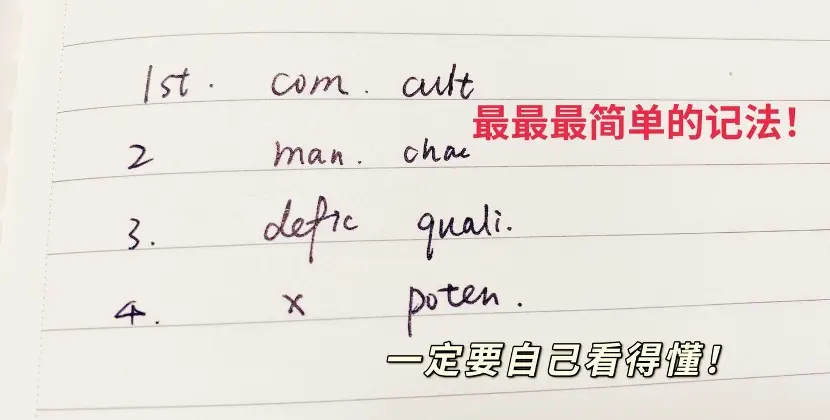 1st. com. cult
最最最简单的记法!
2 man. chae
3. defic quali.
4. x poten.
一定要自己看得懂!